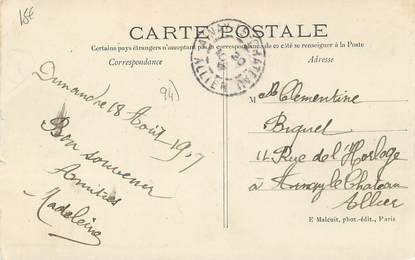 15E
CARTE POSTALE
Certains pays étrangers n'acceptant pas la correspondance de ce côté se renseigner à la Poste
Correspondance
Adresse
94)
Dimanche 18 Août 1907
Bon souvenir
Amitiés
Madeleine
CHATEAU
ALLIER
M Clementine
Biguet
11 Rue de l'Horloge
à Ainay le Chateau
Allier
E Malcuit, phot.-édit., Paris